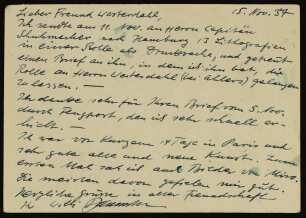 Lieber Freund Westerdahl, 15. Nov. 54
Ich sandte am 11. Nov. an Herrn Capitän
Schuhmacher nach Hamburg 13 Lithografien
in einer Rolle als Drucksache, und getrennt
einen Brief an ihn, in dem ich ihn bat, die
Rolle an Herrn Westerdahl (bei Ahlers) gelangen
zu lassen. —
Ich danke sehr für Ihren Brief vom 5. Nov.
durch Flugpost, den ich sehr schnell er-
hielt. —
Ich war vor Kurzem 14 Tage in Paris und
sah gute alte und neue Kunst. Zum
ersten Mal sah ich auch Bilder von Miro.
Die meisten davon gefielen mir gut.
Herzliche Grüsse in alter Freundschaft
Ihr Willi Baumeister